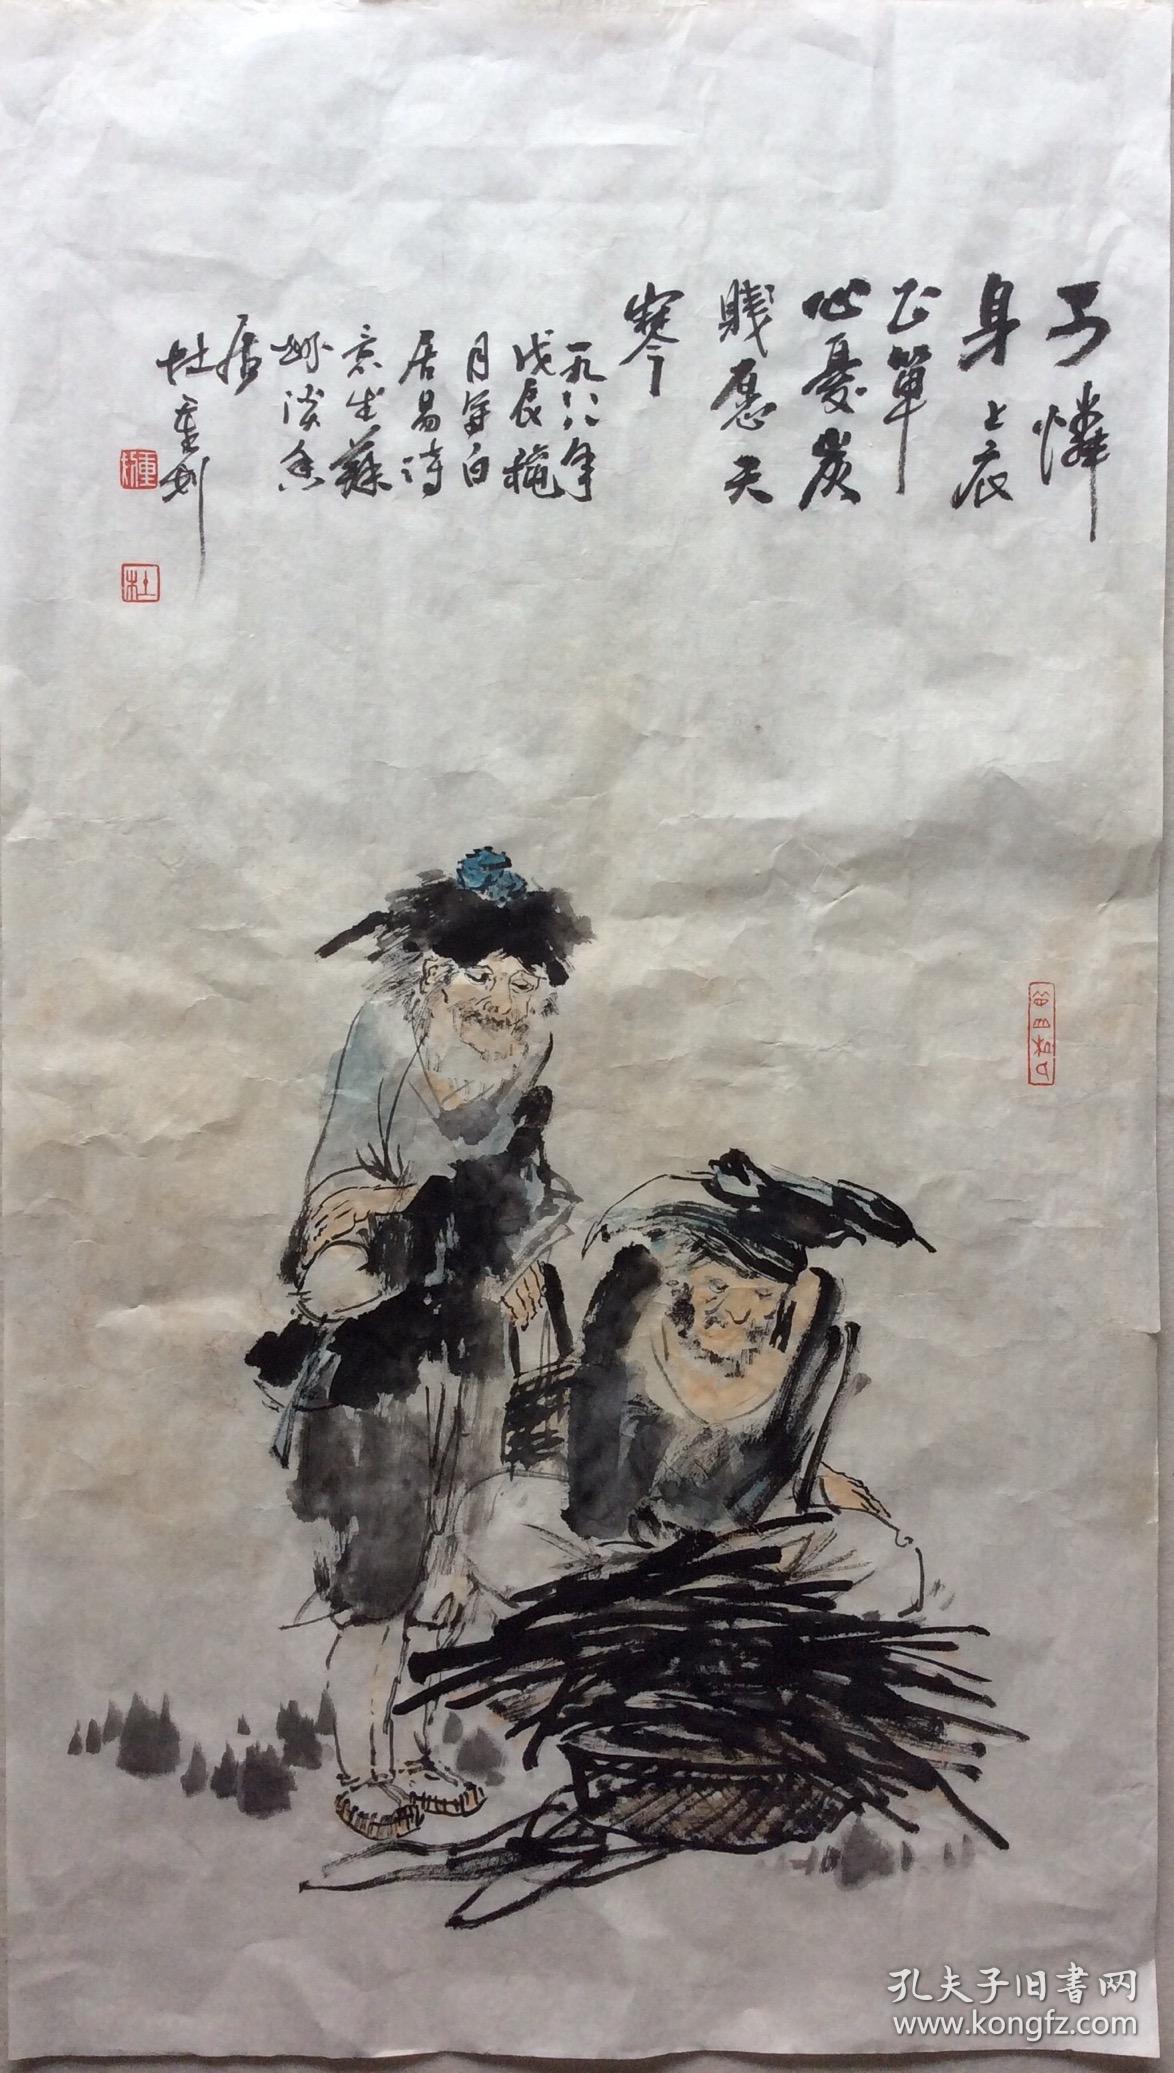 可憐
身上衣
正單
心憂炭
賤愿天
寒
一九八八年
戊辰穐
月写白
居易诗
意生蘇
州淡
居
杜重划
重划
杜
孔夫子旧书网
www.kongfz.com